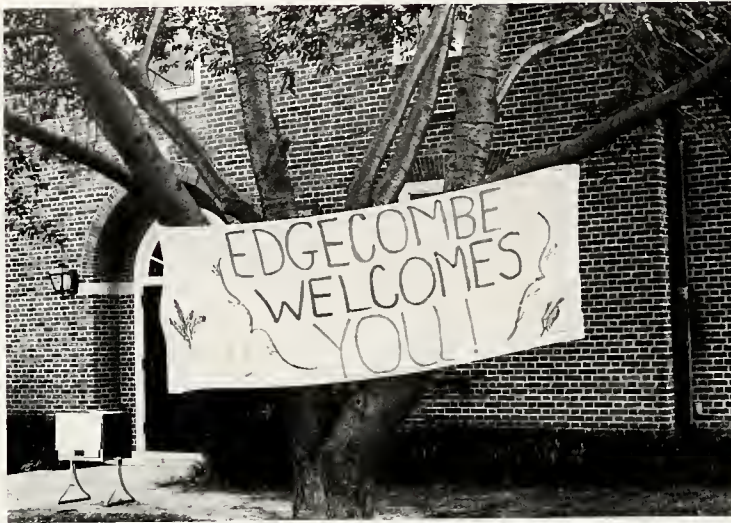 EDGECOMBE
WELCOMES
YOU!